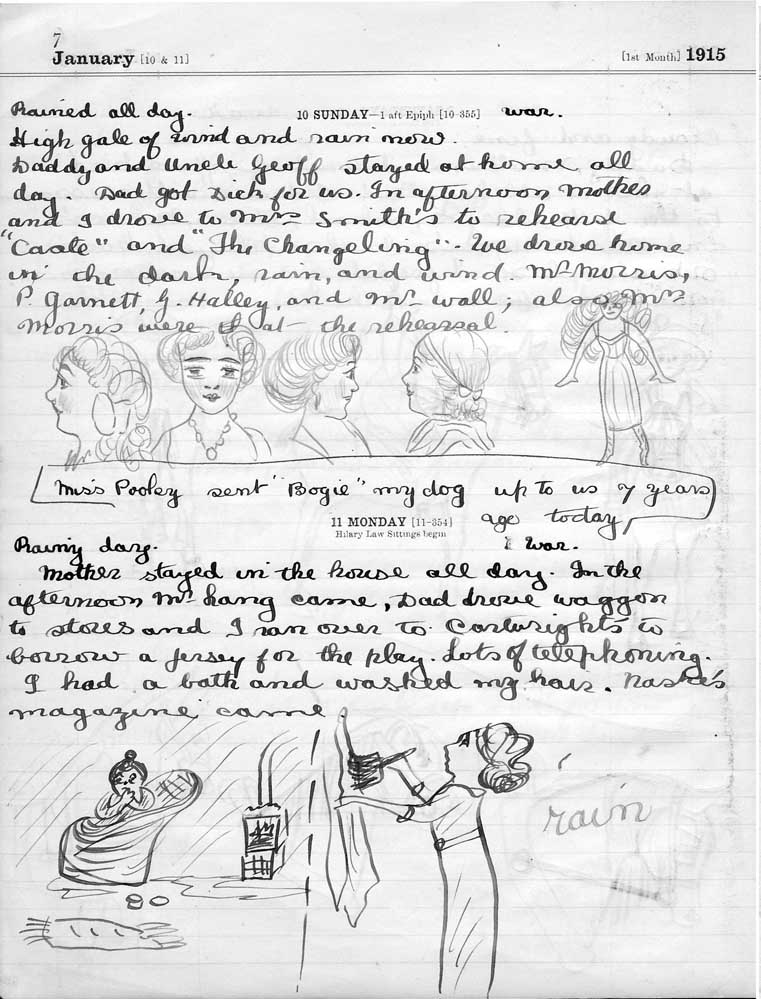 7
January [10 & 11] [1st Month] 1915
Rained all day. 10 SUNDAY—1 aft Epiph [10-355] war.
High gale of wind and rain now.
Daddy and Uncle Geoff stayed at home all
day. Dad got Dick for us. In afternoon Mother
and I drove to Mrs Smith's to rehearse
"Caste" and "The Changeling". We drove home
in the dark, rain, and wind. Mr Morris,
P. Garnett, G. Halley, and Mr Wall; also Mrs
Morris were at the rehearsal.
Miss Pooley sent "Bogie" my dog up to us 7 years
ago today,
11 MONDAY [11-354]
Hilary Law Sittings begin
Rainy day. war.
Mother stayed in the house all day. In the
afternoon Mr Lang came, Dad drove waggon
to stores and I ran over to Cartwright's to
borrow a jersey for the play. Lots of telephoning.
I had a bath and washed my hair. Nash's
magazine came.
rain